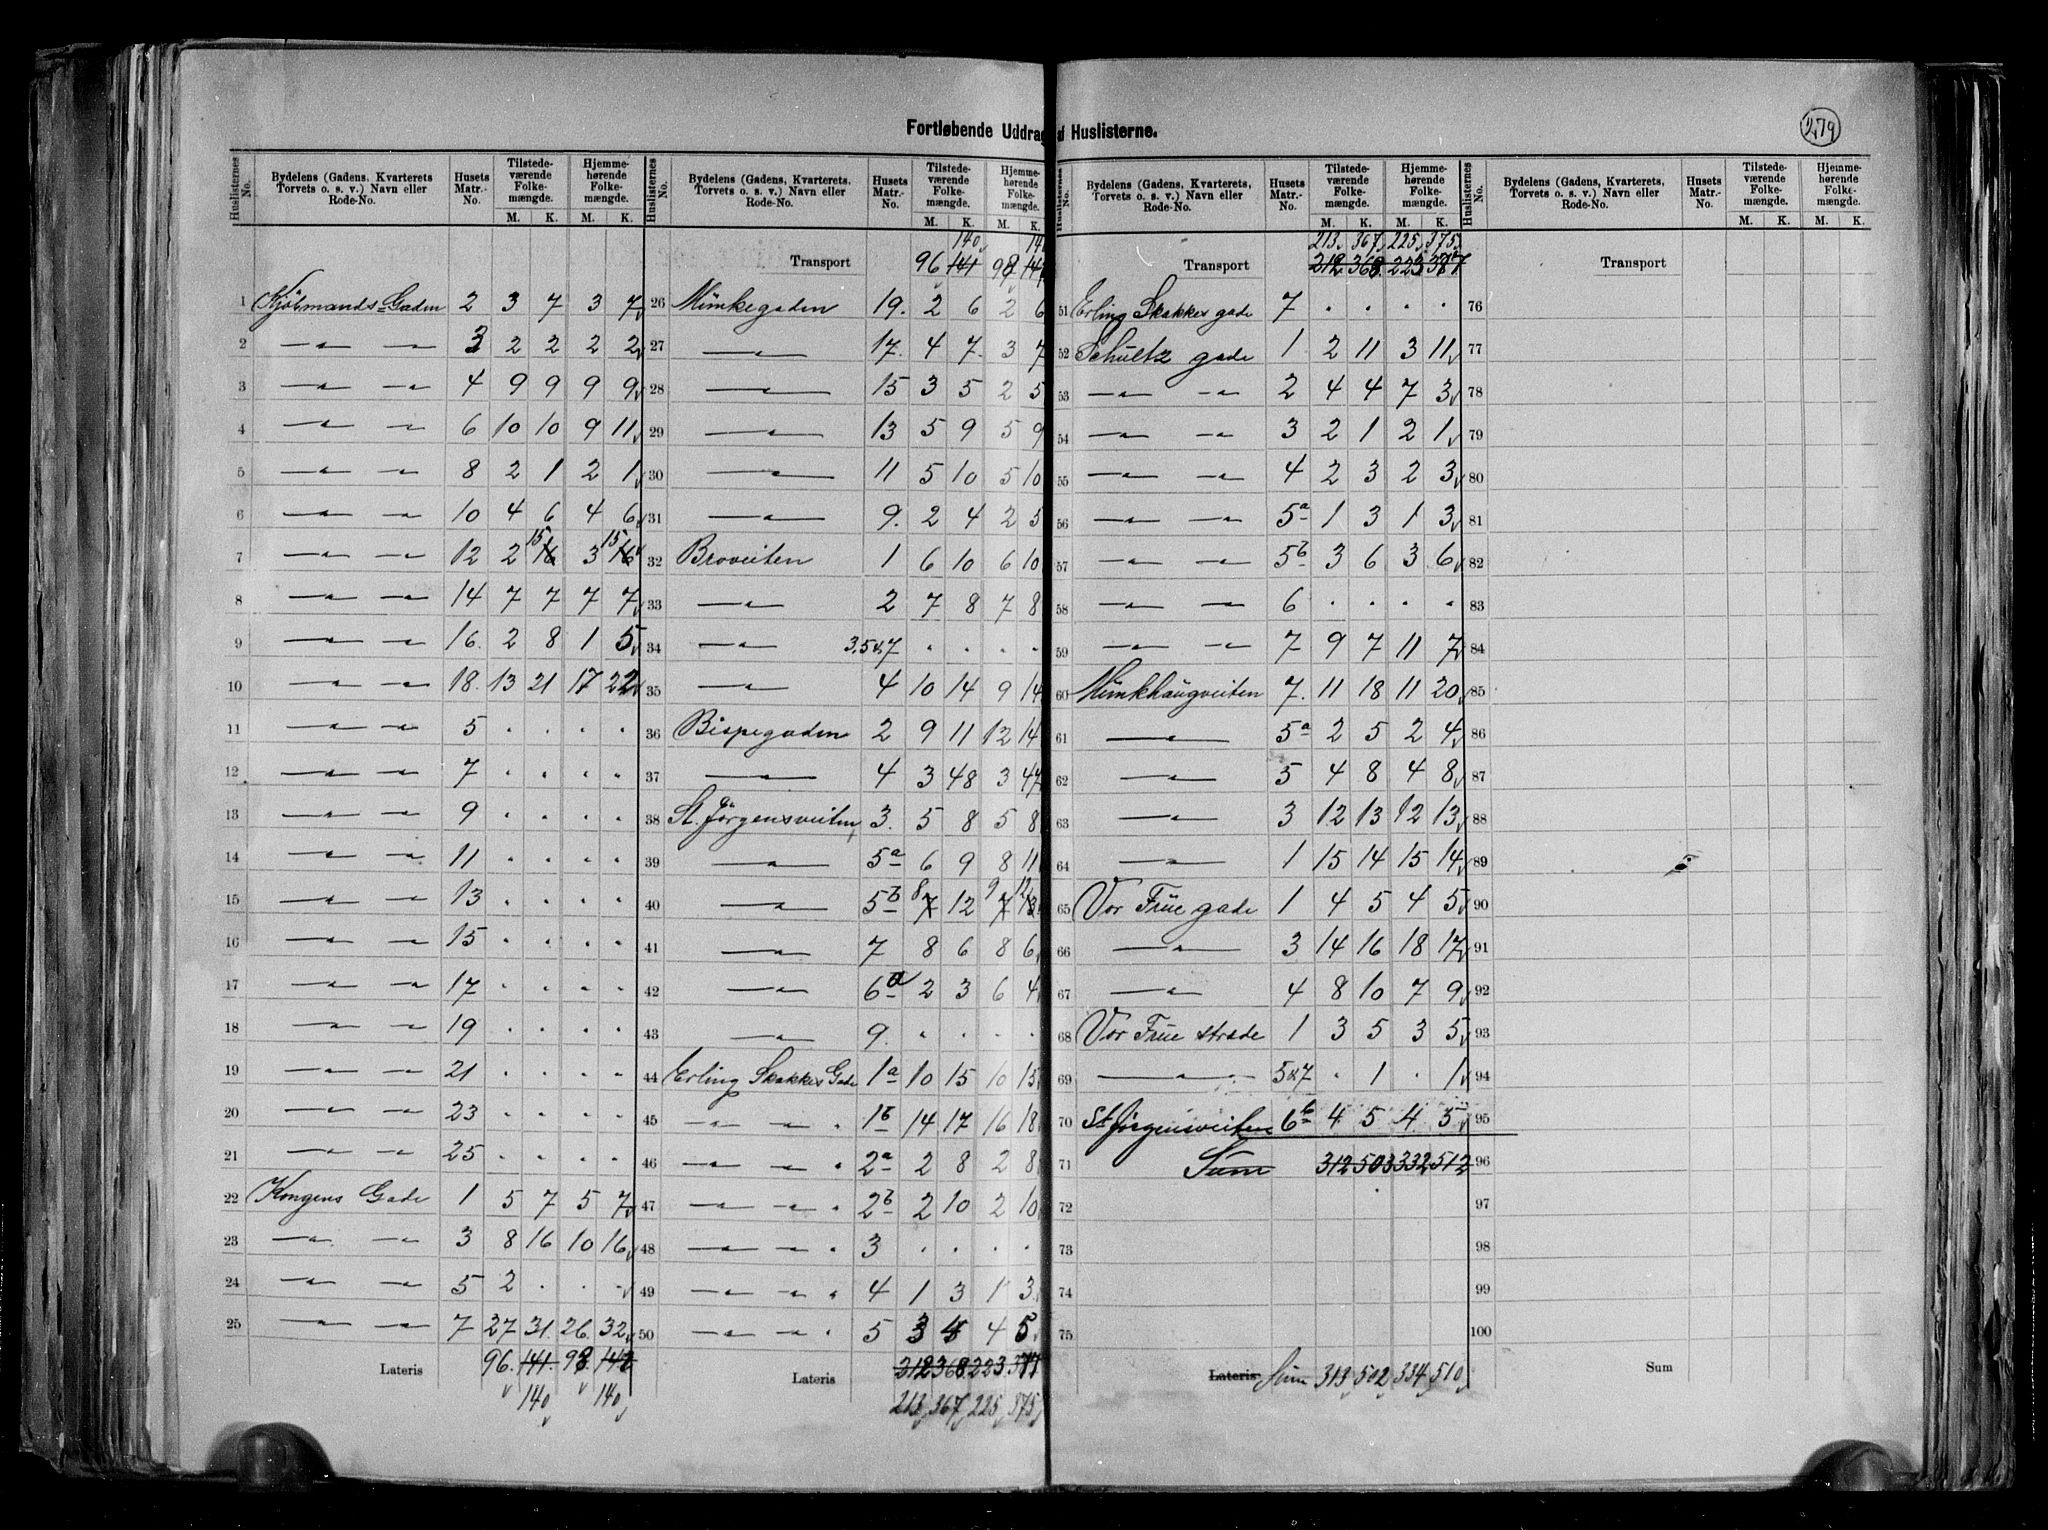 Fortløbende Uddrag af Huslisterne.
279
Huslisternes No. | Bydelens (Gadens, Kvarterets, Torvets o. s. v.) Navn eller Rode-No. | Husets Matr.-No. | Tilstedeværende Folkemængde. M. K. | Hjemmehørende Folkemængde. M. K.
1 Kjöbmands Gaden 2 3 7 3 7
2 —„— —„— 3 2 2 2 2
3 —„— —„— 4 9 9 9 9
4 —„— —„— 6 10 10 9 11
5 —„— —„— 8 2 1 2 1
6 —„— —„— 10 4 6 4 6
7 —„— —„— 12 2 15 16 3 15 16
8 —„— —„— 14 7 7 7 7
9 —„— —„— 16. 2 8 1 5
10 —„— —„— 18. 13 21 17 22
11 —„— —„— 5 . . . .
12 —„— —„— 7 . . . .
13 —„— —„— 9 . . . .
14 —„— —„— 11 . . . .
15 —„— —„— 13 . . . .
16 —„— —„— 15 . . . .
17 —„— —„— 17 . . . .
18 —„— —„— 19 . . . .
19 —„— —„— 21 . . . .
20 —„— —„— 23 . . . .
21 —„— —„— 25 . . . .
22 Kongens Gade 1 5 7 5 7
23 —„— —„— 3 8 16 10 16
24 —„— —„— 5 2 . . .
25 —„— —„— 7 27 31. 26. 32
Lateris 96. 141. 98 142
140 140
Huslisternes No. | Bydelens (Gadens, Kvarterets, Torvets o. s. v.) Navn eller Rode-No. | Husets Matr.-No. | Tilstedeværende Folkemængde. M. K. | Hjemmehørende Folkemængde. M. K.
140 140
Transport 96 141 98
26 Munkegaden 19. 2 6 2 6
27 —„— 17. 4 7. 3 7
28 —„— 15 3 5 2 5
29 —„— 13 5 9 5 9
30 —„— 11 5 10 5 10
31 —„— 9. 2 4 2 5
32 Broveiten 1 6 10 6 10
33 —„— 2 7 8 7 8
34 —„— 3,5&7 . . . .
35 —„— 4 10 14 9 14
36 Bispegaden 2 9 11 12 14
37 —„— 4 3 48 3 47
38 St. Jörgensveiten 3. 5 8 5 8
39 —„— 5a 6 9 8 11
40 —„— 5b 8 7 12 9 7 12 13
41 —„— 7 8 6 8 6
42 —„— 6a 2 3 6 4
43 —„— 9. . . . .
44 Erling Skakkes Gade 1a 10 15 10 15
45 —„— —„— 1b 14 17 16 18
46 —„— —„— 2a 2 8 2 8
47 —„— —„— 2b 2 10 2 10
48 —„— —„— 3 . . . .
49 —„— —„— 4 1 3 1 3
50 —„— —„— 5 3 4 4 5
Lateris 212 368 223. 377
213 367 225 375
Huslisternes No. | Bydelens (Gadens, Kvarterets, Torvets o. s. v.) Navn eller Rode-No. | Husets Matr.-No. | Tilstedeværende Folkemængde. M. K. | Hjemmehørende Folkemængde. M. K.
213 367 225 375
Transport 212 368 223
51 Erling Skakkes gade 7 . . . .
52 Schultz gade 1 2 11 3 11
53 —„— —„— 2 4 4 7 3
54 —„— —„— 3 2 1 2 1
55 —„— —„— 4 2 3 2 3
56 —„— —„— 5a 1 3 1 3
57 —„— —„— 5b 3 6 3 6
58 —„— —„— 6 . . . .
59 —„— —„— 7 9 7 11 7
60 Munkhaugveiten 7. 11 18 11 20
61 —„— 5a 2 5 2 4
62 —„— 5 4 8 4 8
63 —„— 3 12 13 12 13
64 —„— 1 15 14 15 14
65 Vor Frue gade 1 4 5 4 5
66 —„— 3 14 16 18 17
67 —„— 4 8 10 7 9
68 Vor Frue stræde 1 3 5 3 5
69 —„— 5&7 . 1 . 1
70 St. Jörgensveiten 6b 4 5 4 5
71 Sum 312 503 332 512
72
73
74
75
Lateris Sum 313 502 334 510
Huslisternes No. | Bydelens (Gadens, Kvarterets, Torvets o. s. v.) Navn eller Rode-No. | Husets Matr.-No. | Tilstedeværende Folkemængde. M. K. | Hjemmehørende Folkemængde. M. K.
Transport
76
77
78
79
80
81
82
83
84
85
86
87
88
89
90
91
92
93
94
95
96
97
98
99
100
Sum